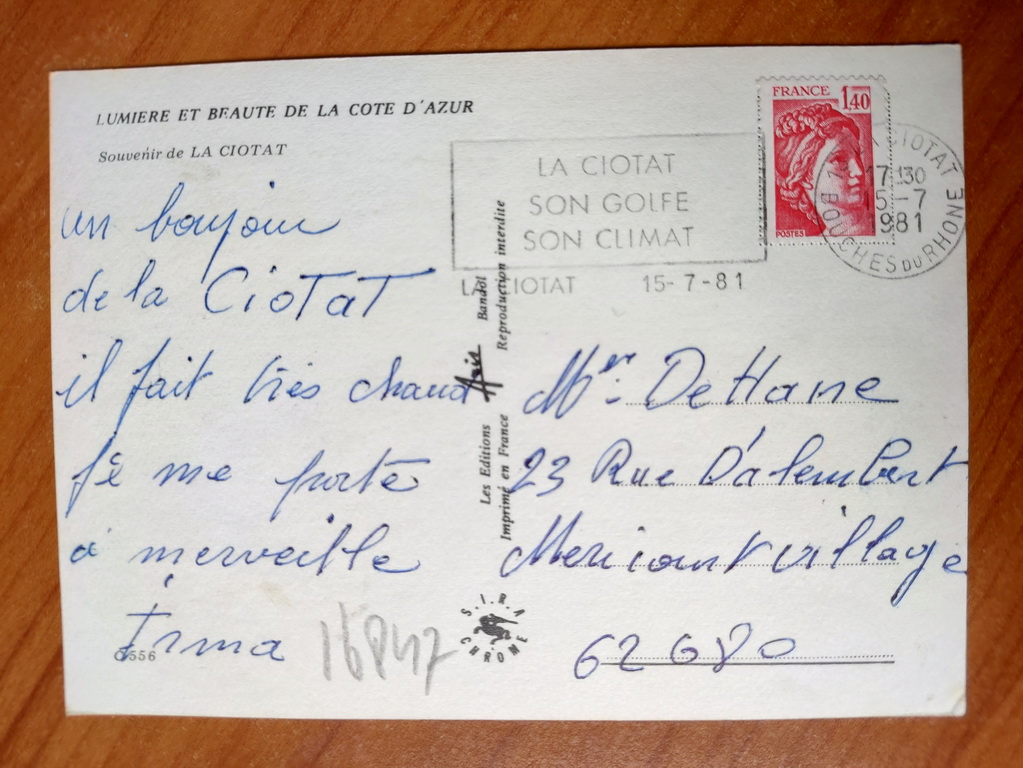 LUMIERE ET BEAUTE DE LA COTE D'AZUR
Souvenir de LA CIOTAT
un bonjour
de la CioTaT
il fait très chaud
je me porte
à merveille
Irma
C 556
16847
Les Editions Aris Bandol
Imprimé en France Reproduction interdite
S.I.R.A.
CHROME
LA CIOTAT
SON GOLFE
SON CLIMAT
LA CIOTAT 15-7-81
FRANCE 1,40
POSTES
LA CIOTAT
17H30
15-7
1981
BOUCHES DU RHONE
Mr. DeHane
23 Rue D'alembert
Mericourt village
62680